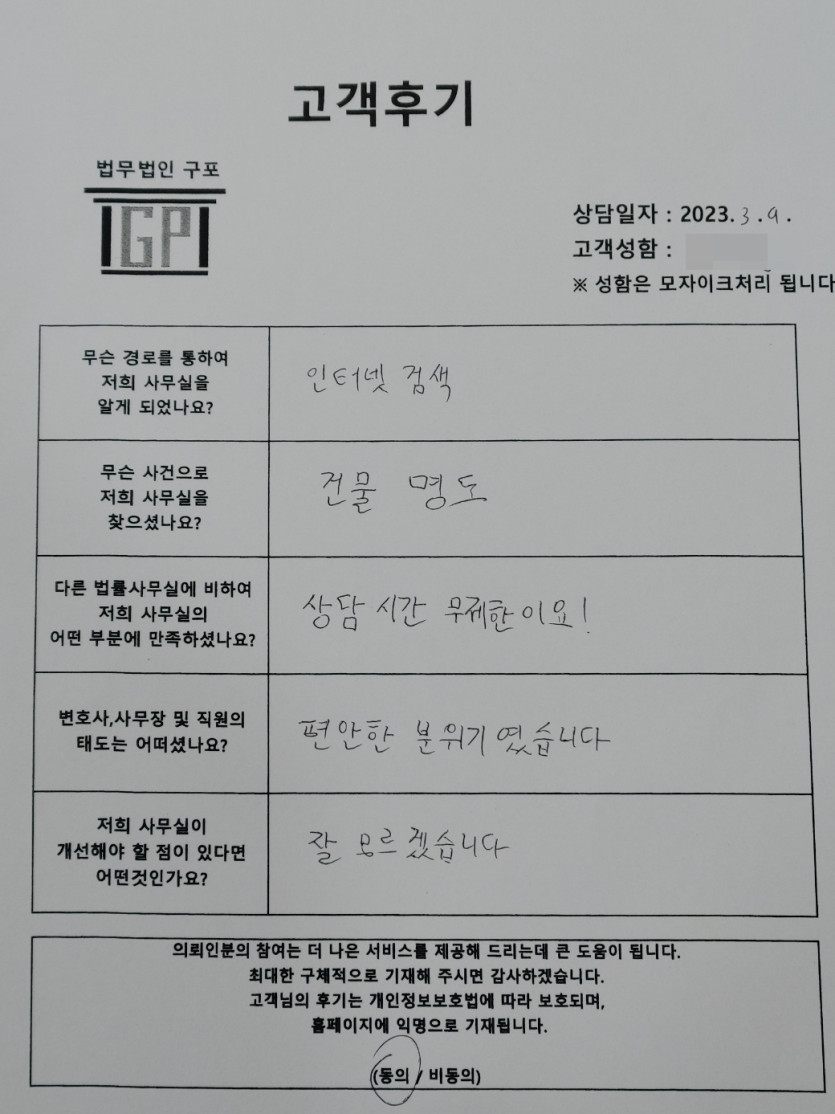 고객후기
법무법인 구포
GP
상담일자 : 2023. 3. 9.
고객성함 :
※ 성함은 모자이크처리 됩니다
무슨 경로를 통하여
저희 사무실을
알게 되었나요?
인터넷 검색
무슨 사건으로
저희 사무실을
찾으셨나요?
건물 명도
다른 법률사무실에 비하여
저희 사무실의
어떤 부분에 만족하셨나요?
상담 시간 무제한이요!
변호사,사무장 및 직원의
태도는 어떠셨나요?
편안한 분위기였습니다
저희 사무실이
개선해야 할 점이 있다면
어떤것인가요?
잘 모르겠습니다
의뢰인분의 참여는 더 나은 서비스를 제공해 드리는데 큰 도움이 됩니다.
최대한 구체적으로 기재해 주시면 감사하겠습니다.
고객님의 후기는 개인정보보호법에 따라 보호되며,
홈페이지에 익명으로 기재됩니다.
(동의 / 비동의)